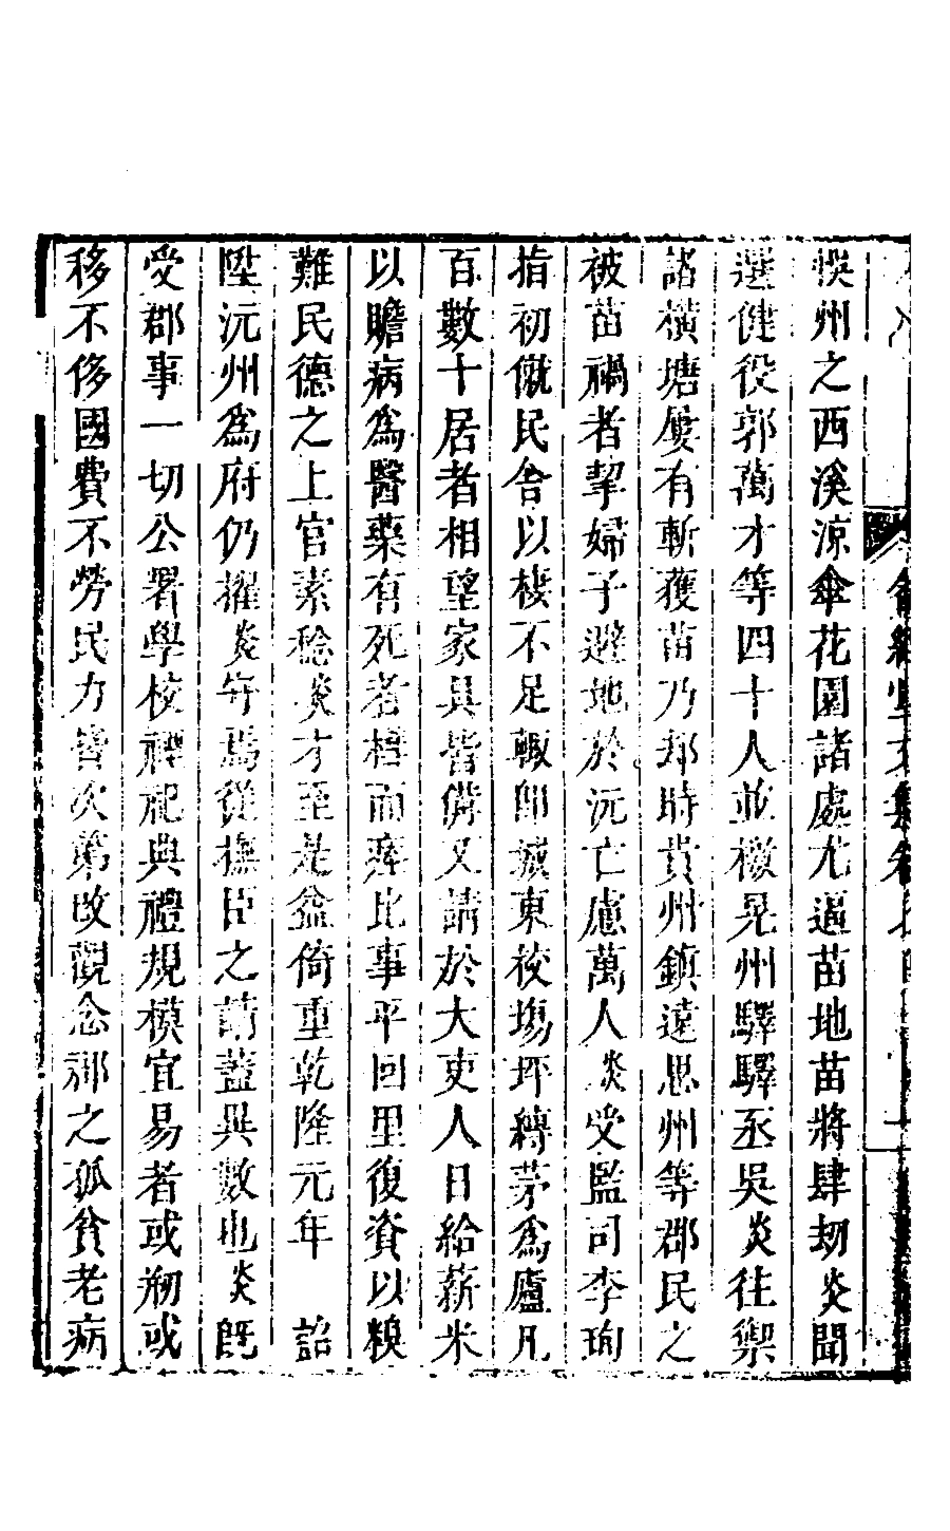 悞州之西溪涼傘花園諸處尤逼苗地苗將肆刼炎聞
選健役郭萬才等四十人並檄晃州驛驛丞吳炎往禦
諸橫塘屢有斬獲苗乃却時貴州鎮遠思州等郡民之
被苗禍者挈婦子避地於沅亡慮萬人炎受監司李珣
指初僦民舍以棲不足輙卽城東校塲坪縳茅爲廬凡
百數十居者相望家具皆備又請於大吏人日給薪米
以贍病爲醫藥有死者槥而瘞比事平回里復資以糗
難民德之上官素稔炎才至是益倚重乾隆元年　詔
陞沅州爲府仍擢炎守焉從撫臣之請蓋異數也炎旣
受郡事一切公署學校禋祀典禮規模宜易者或剏或
移不侈國費不勞民力皆次第改觀念郡之孤貧老病